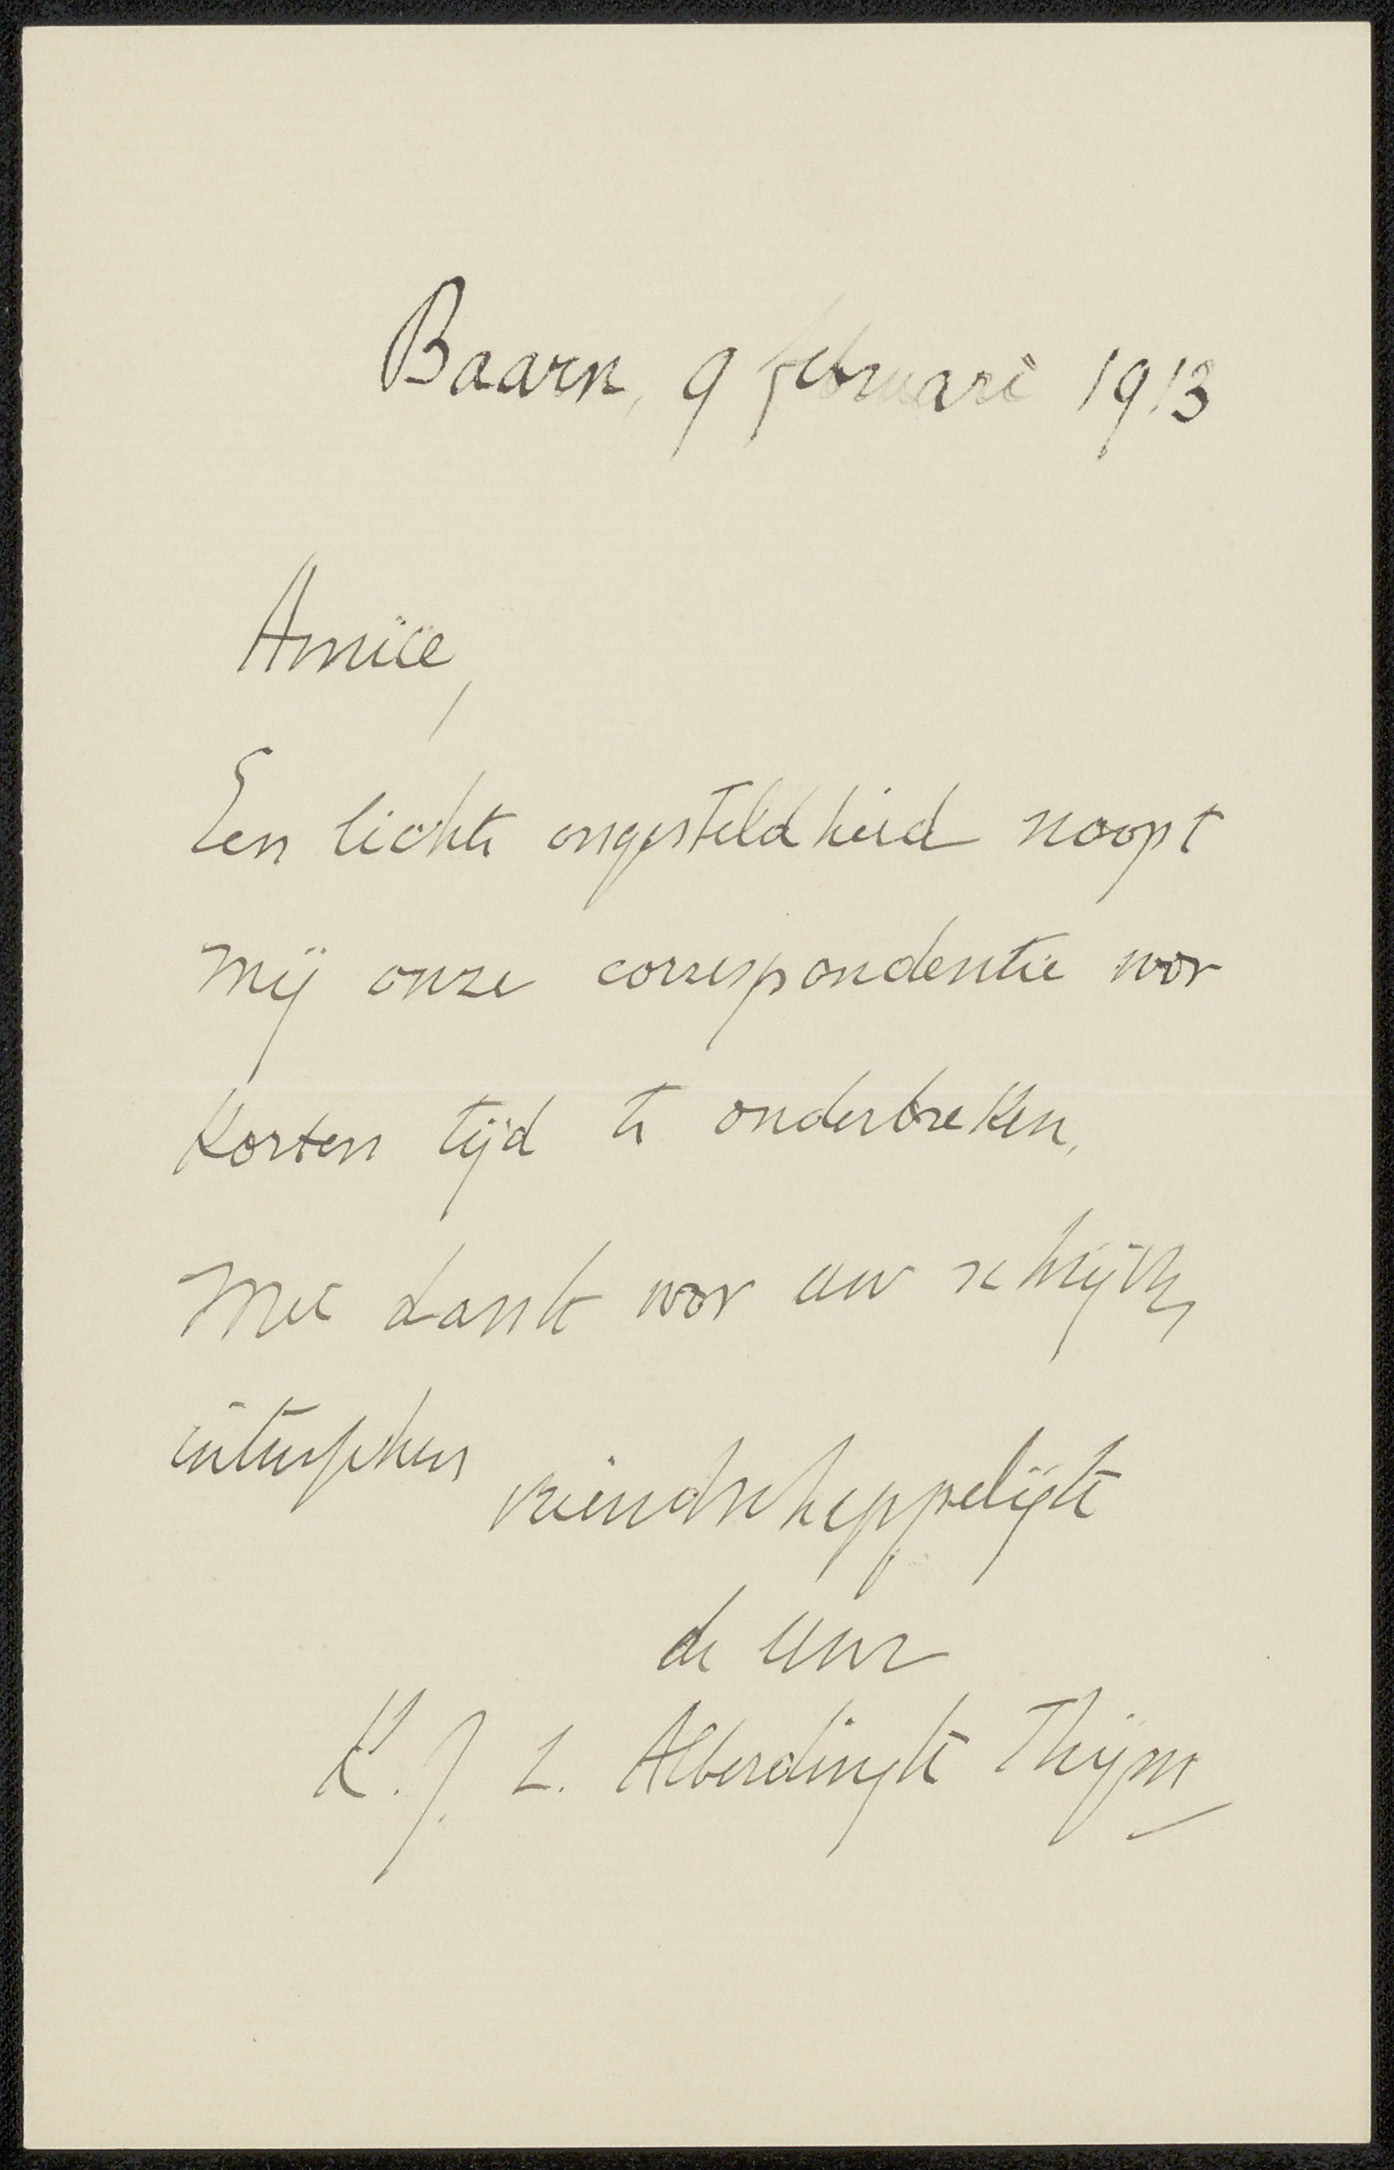 Baarn, 9 februari 1913
Amice,
Een lichte ongesteldheid noopt
mij onze correspondentie voor
korten tijd te onderbreken.
Met dank voor uw schrijven,
intusschen
vriendschappelijk
de uwe
K. J. L. Alberdingk Thijm